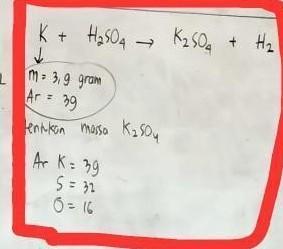 K + H₂SO₄ → K₂SO₄ + H₂
↓
m = 3,9 gram
Ar = 39
tentukan massa K₂SO₄
Ar K = 39
S = 32
O = 16